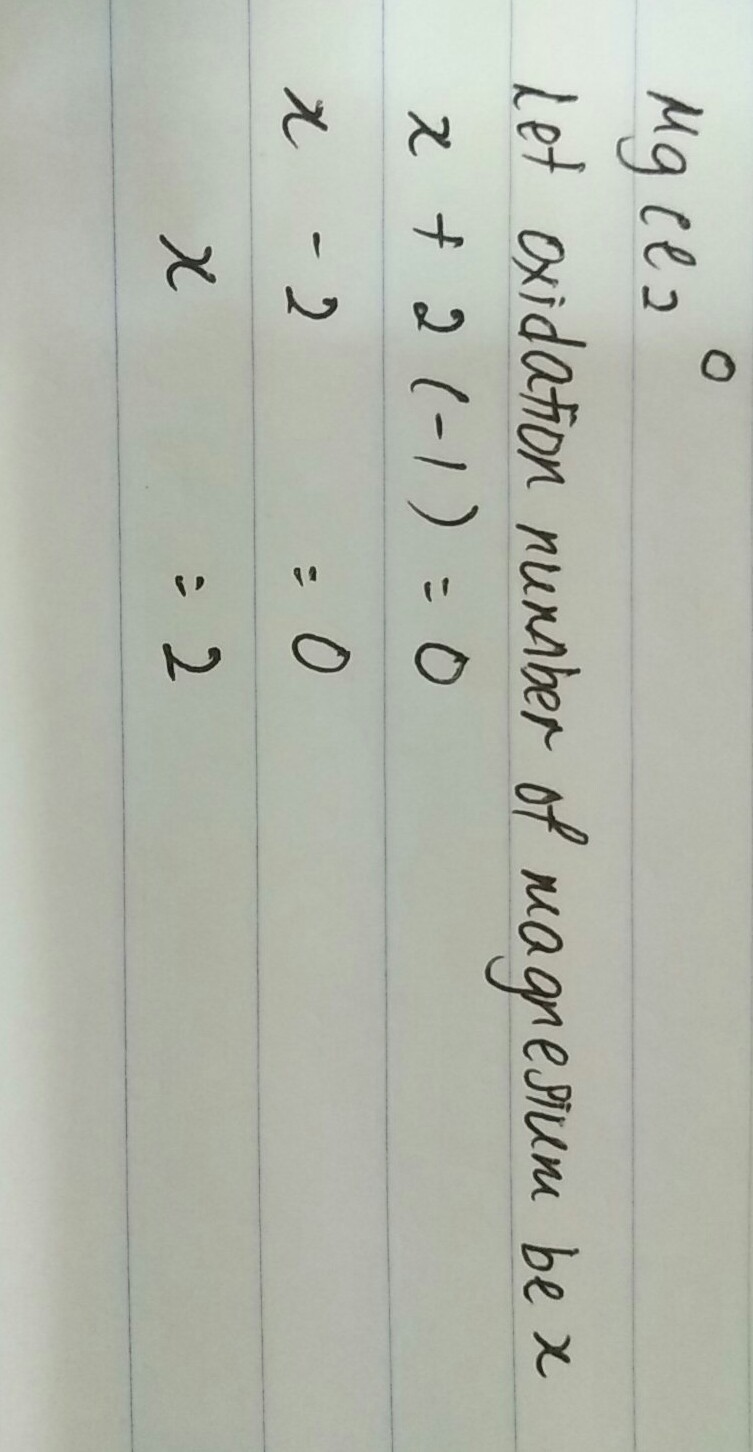 MgCl₂⁰
Let oxidation number of magnesium be x
x + 2 (-1) = 0
x - 2 = 0
x = 2